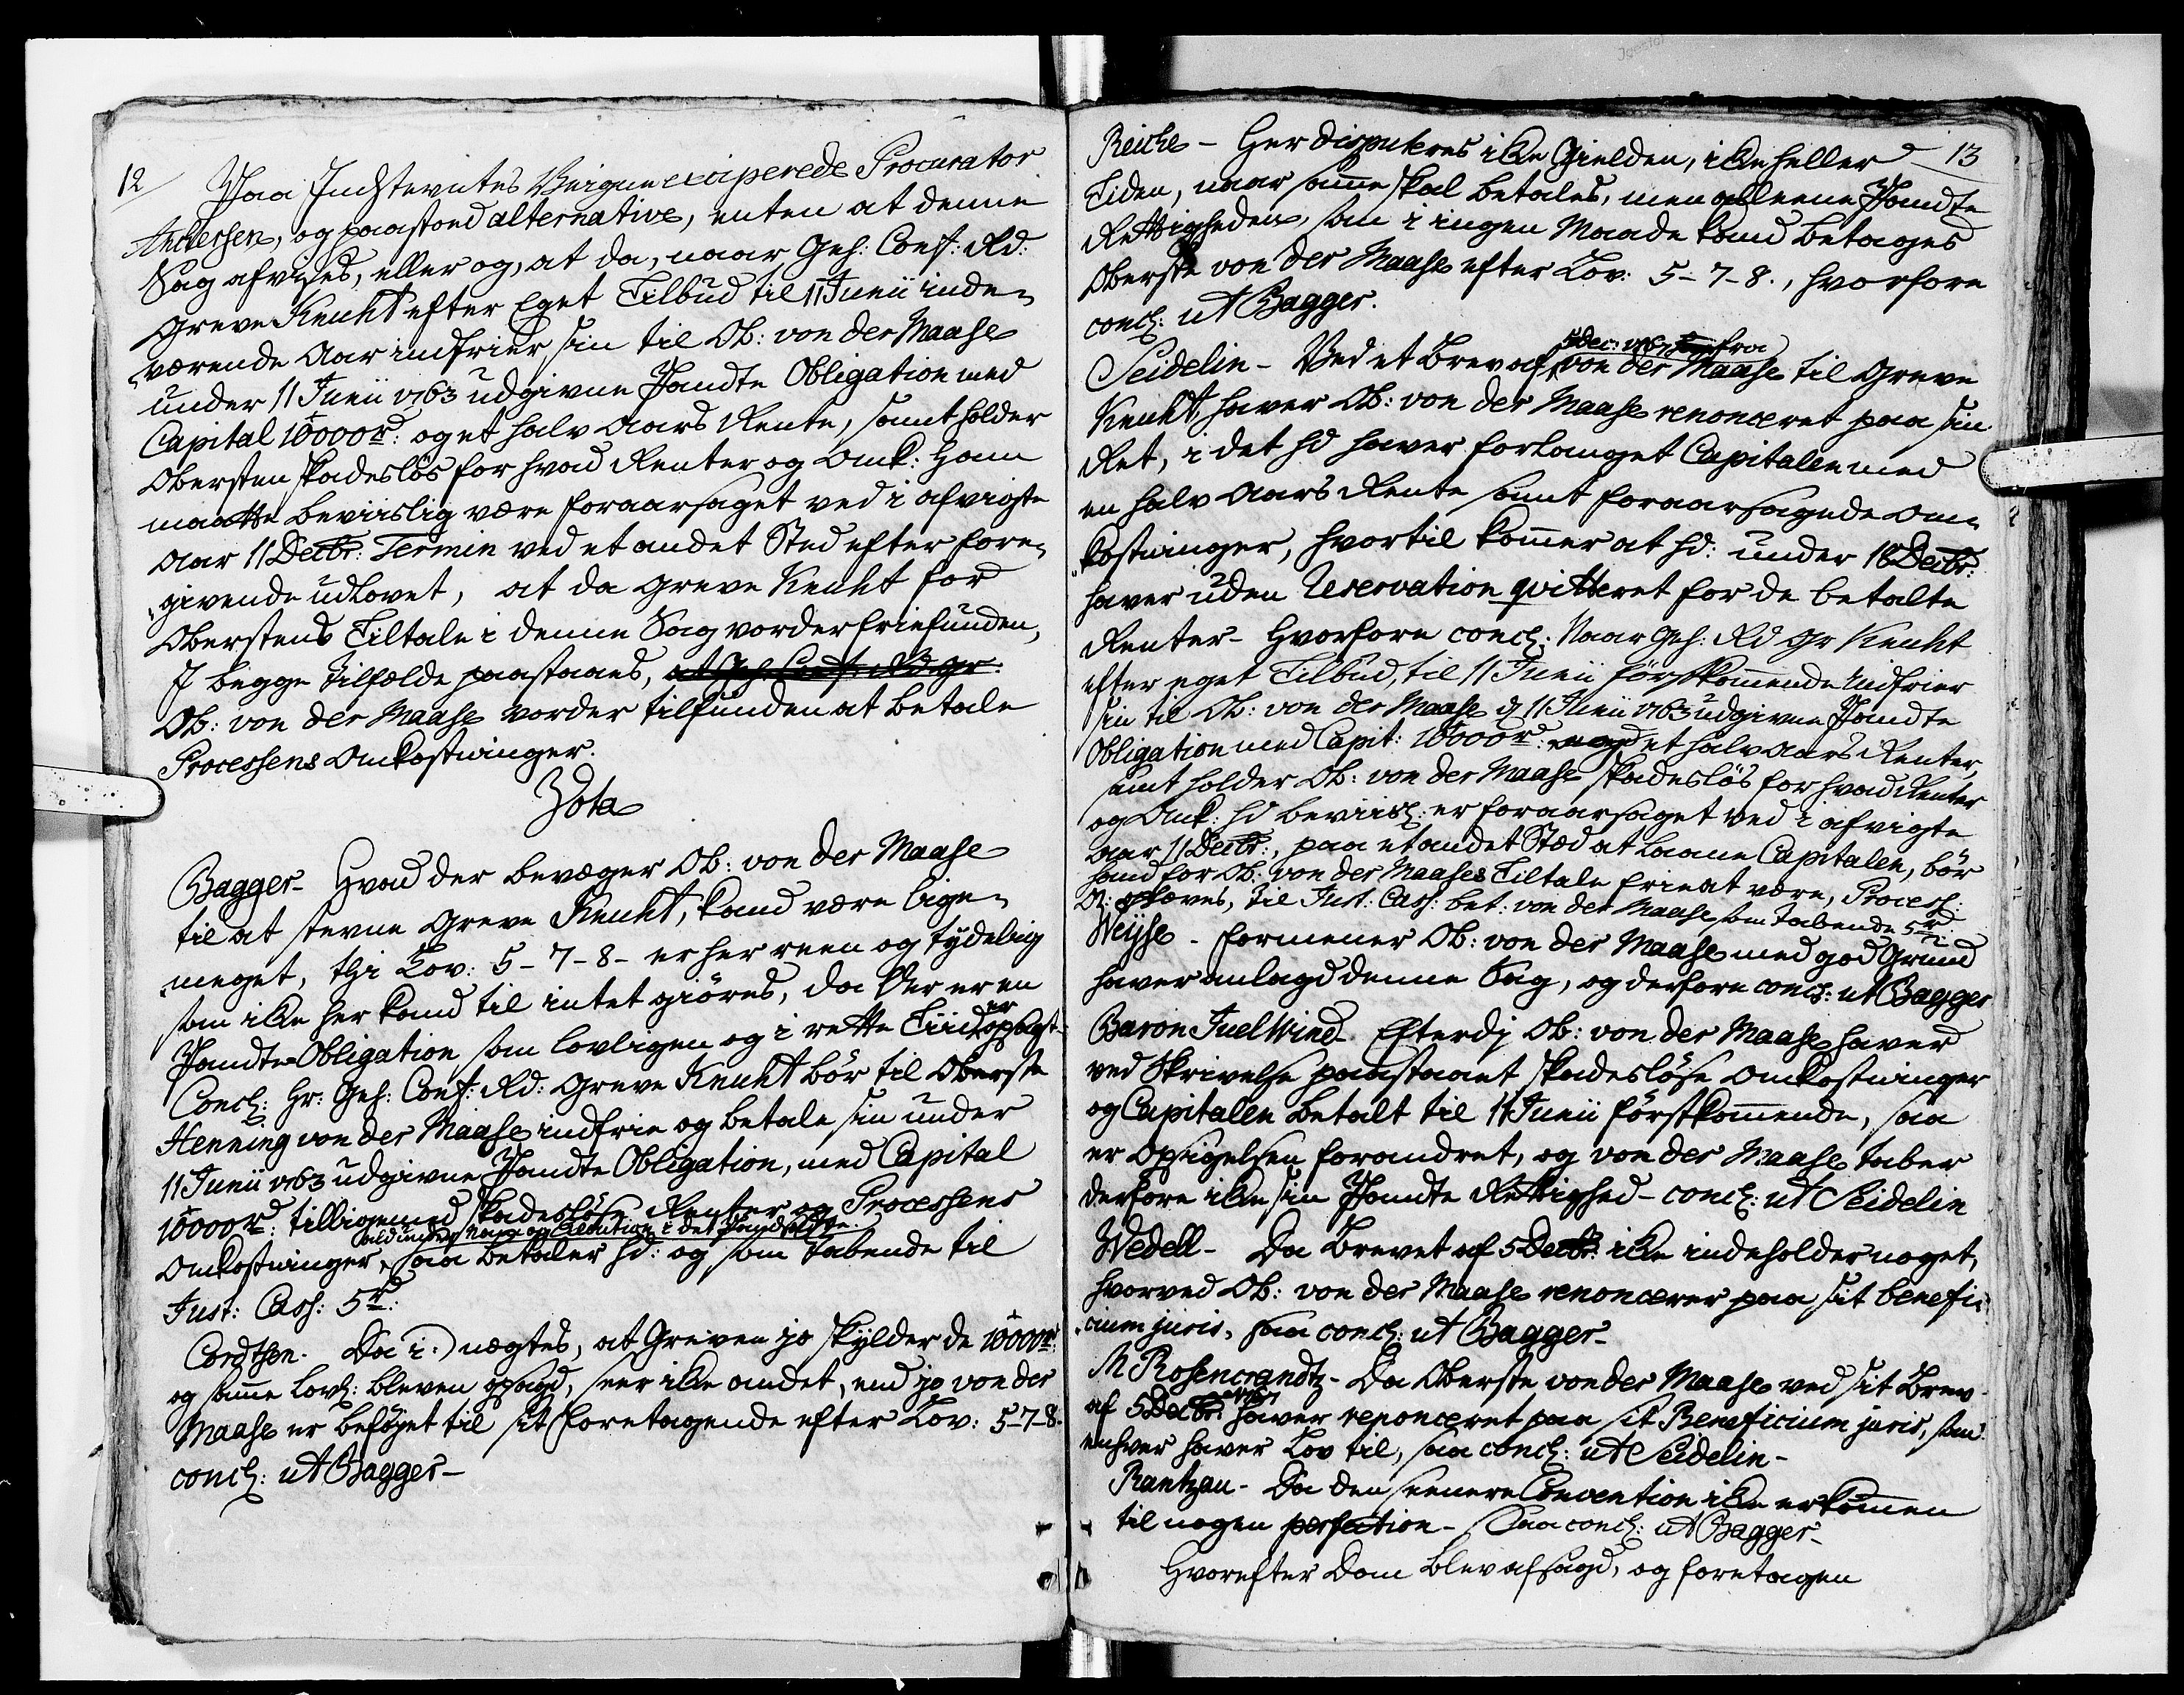 12
Paa Indstevntes Veigne exciperede Procurator
Anchersen, og paastoed alternative, enten at denne
Sag afvises, eller og, at da, naar Geh: Conf: Rd:
Greve Knuht efter Eget Tilbud til 11 Junii inde¬
værende Aar indfrier sin til Ob: von der Maase
under 11 Junii 1763 udgivne Pandte Obligation med
Capital 10000 rd: og et halv Aars Rente, samt holder
Obersten skadesløs for hvad Renter og Omk: Ham
maatte beviislig være foraarsaget ved i afvigte
Aar 11 Decbr: Termin ved et andet Sted efter fore¬
givende udlovet, at da Greve Knuht for
Oberstens Tiltale i denne Sag vorder friefunden,
I begge tilfælde paastaaes, at Geh: Conf: Rd: Gr:
Ob: von der Maase vorder tilfunden at betale
Processens Omkostninger.
Vota
Bagger - Hvad der bevæger Ob: von der Maase
til at stevne Greve Knuht, kand være lige¬
meget, thi Lov: 5-7-8- er her reen og tydelig
som ikke her kand til intet giøres, da der er en
Pandte-Obligation som lovligen og i rette Tiid er opsagt
Concl: Hr: Geh: Conf: Rd: Greve Knuht bør til Oberste
Henning von der Maase indfrie og betale sin under
11 Junii 1763 udgivne Pandte Obligation, med Capital
10000 rd: tilligemed skadesløse Renter og Processens
alt under Nam og Execution i det Pandsatte.
Omkostninger, saa betaler hd: og som tabende til
Just: Cass: 5 rd:
Cordtsen. Da i: nægtes, at Greven jo skylder de 10000 rd:
og samme lovl: bleven opsagd, seer ikke andet, end jo von der
Maase er beføyet til sit foretagende efter Lov: 5-7-8.
concl: ut Bagger -
13
Reiche - Her disputeres ikke Gielden, ikke heller
Tiden, naar samme skal betales, men alleene Pandte
Rettigheden, som i ingen Maade kand betages
Oberste von der Maase efter Lov: 5-7-8., hvorfore
concl: ut Bagger.
5 Dec: 1767 fra
Seidelin - Ved et Brev af von der Maase til Greve
Knuht, haver Ob: von der Maase renonceret paa sin
Ret, i det hd haver forlanget Capitalen med
en halv Aars Rente samt foraarsagede Om¬
kostninger, hvortil kommer at hd: under 18 Decbr:
haver uden Reservation qvitteret for de betalte
Renter - Hvorfore concl: Naar Geh: Rd Gr Knuht
efter eget Tilbud, til 11 Junii førstkommende indfrier
sin til Ob: von der Maase d 11 Junii 1763 udgivne Pandte
Obligation med Capit: 10000 rd: og et halv Aars Renter,
samt holder Ob: von der Maase skadesløs for hvad Renter
og Omk: hd beviisl: er foraarsaget ved i afvigte
Aar 11 Decbr:, paa et andet Stæd at laane Capitalen, bør
hand for Ob: von der Maases Tiltale frie at være, Process:
O: ophæves, til Just: Cass: bet: von der Maase som tabende 5 rd:
Weyse - formener Ob: von der Maase med god Grund
haver anlagd denne Sag, og derfore concl: ut Bagger
Baron Juel Wind - Efterdj Ob: von der Maase haver
ved Skrivelse paastaaet skadesløse Omkostninger
og Capitalen betalt til 11 Junii førstkommende, saa
er Opsigelsen forandret, og von der Maase taber
derfore ikke sin Pandte Rettighed - concl: ut Seidelin
Wedell - Da Brevet af 5 Decbr: ikke indeholder noget,
hvorved Ob: von der Maase renoncerer paa sit benefi¬
cium juris, saa concl: ut Bagger -
M Rosencrandtz - Da Oberste von der Maase ved sit Brev
af 5 Decbr: 1767 haver renonceret paa sit Beneficium juris, som
enhver haver Lov til, saa concl: ut Seidelin -
Rantzau - Da den seenere Convention ikke er kommen
til nogen perfection - Saa concl: ut Bagger -
Hvorefter Dom blev afsagd, og foretagen